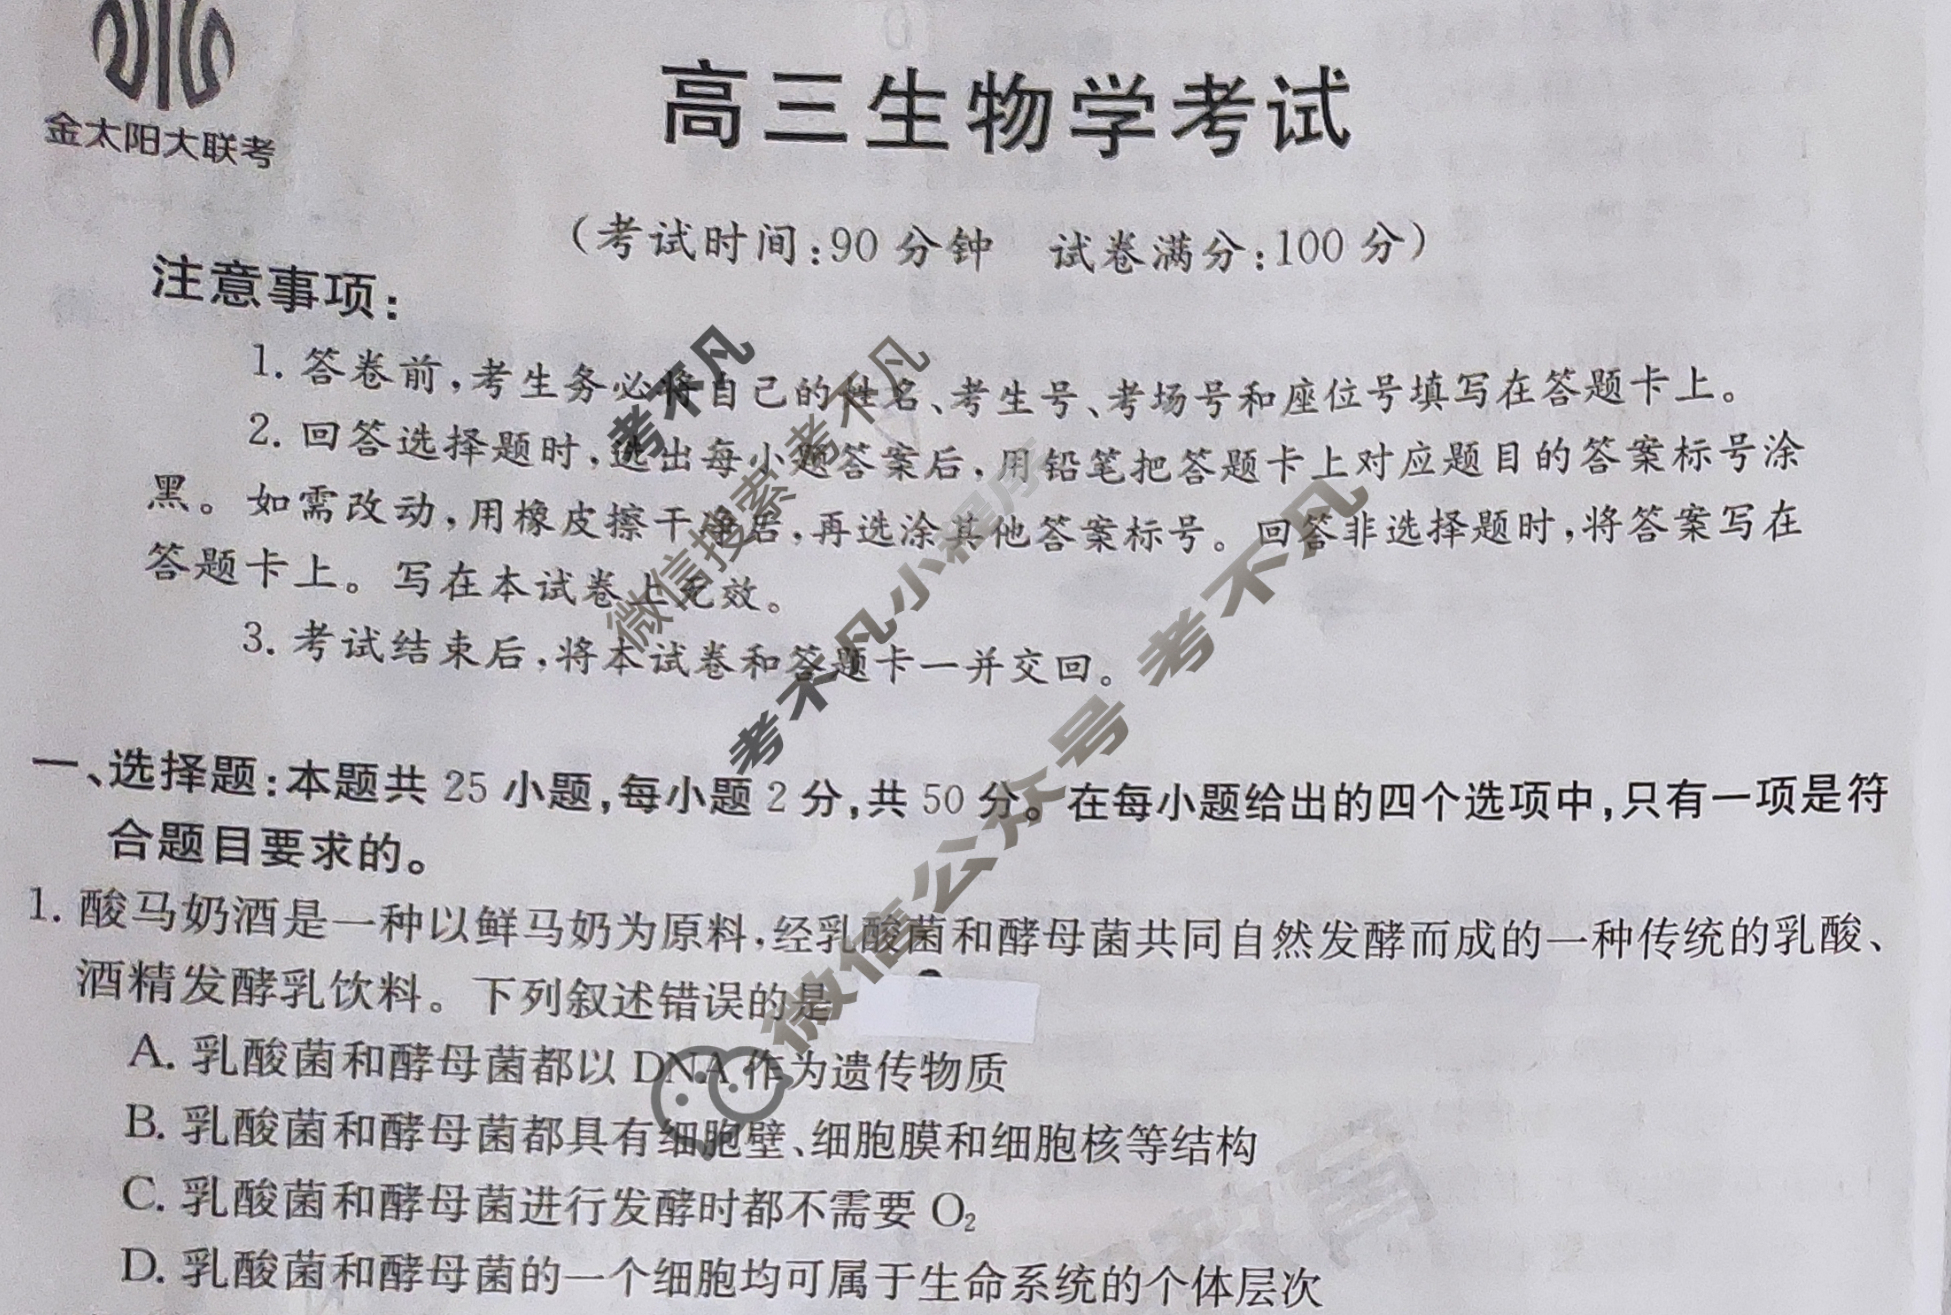 金太阳大联考
高三生物学考试
(考试时间:90分钟 试卷满分:100分)
注意事项:
1. 答卷前,考生务必将自己的姓名、考生号、考场号和座位号填写在答题卡上。
2. 回答选择题时,选出每小题答案后,用铅笔把答题卡上对应题目的答案标号涂
黑。如需改动,用橡皮擦干净后,再选涂其他答案标号。回答非选择题时,将答案写在
答题卡上。写在本试卷上无效。
3. 考试结束后,将本试卷和答题卡一并交回。
一、选择题:本题共 25 小题,每小题 2 分,共 50 分。在每小题给出的四个选项中,只有一项是符
合题目要求的。
1. 酸马奶酒是一种以鲜马奶为原料,经乳酸菌和酵母菌共同自然发酵而成的一种传统的乳酸、
酒精发酵乳饮料。下列叙述错误的是
A. 乳酸菌和酵母菌都以 DNA 作为遗传物质
B. 乳酸菌和酵母菌都具有细胞壁、细胞膜和细胞核等结构
C. 乳酸菌和酵母菌进行发酵时都不需要 O₂
D. 乳酸菌和酵母菌的一个细胞均可属于生命系统的个体层次
考不凡
微信搜索 考不凡
考不凡小程序
微信公众号 考不凡
教育